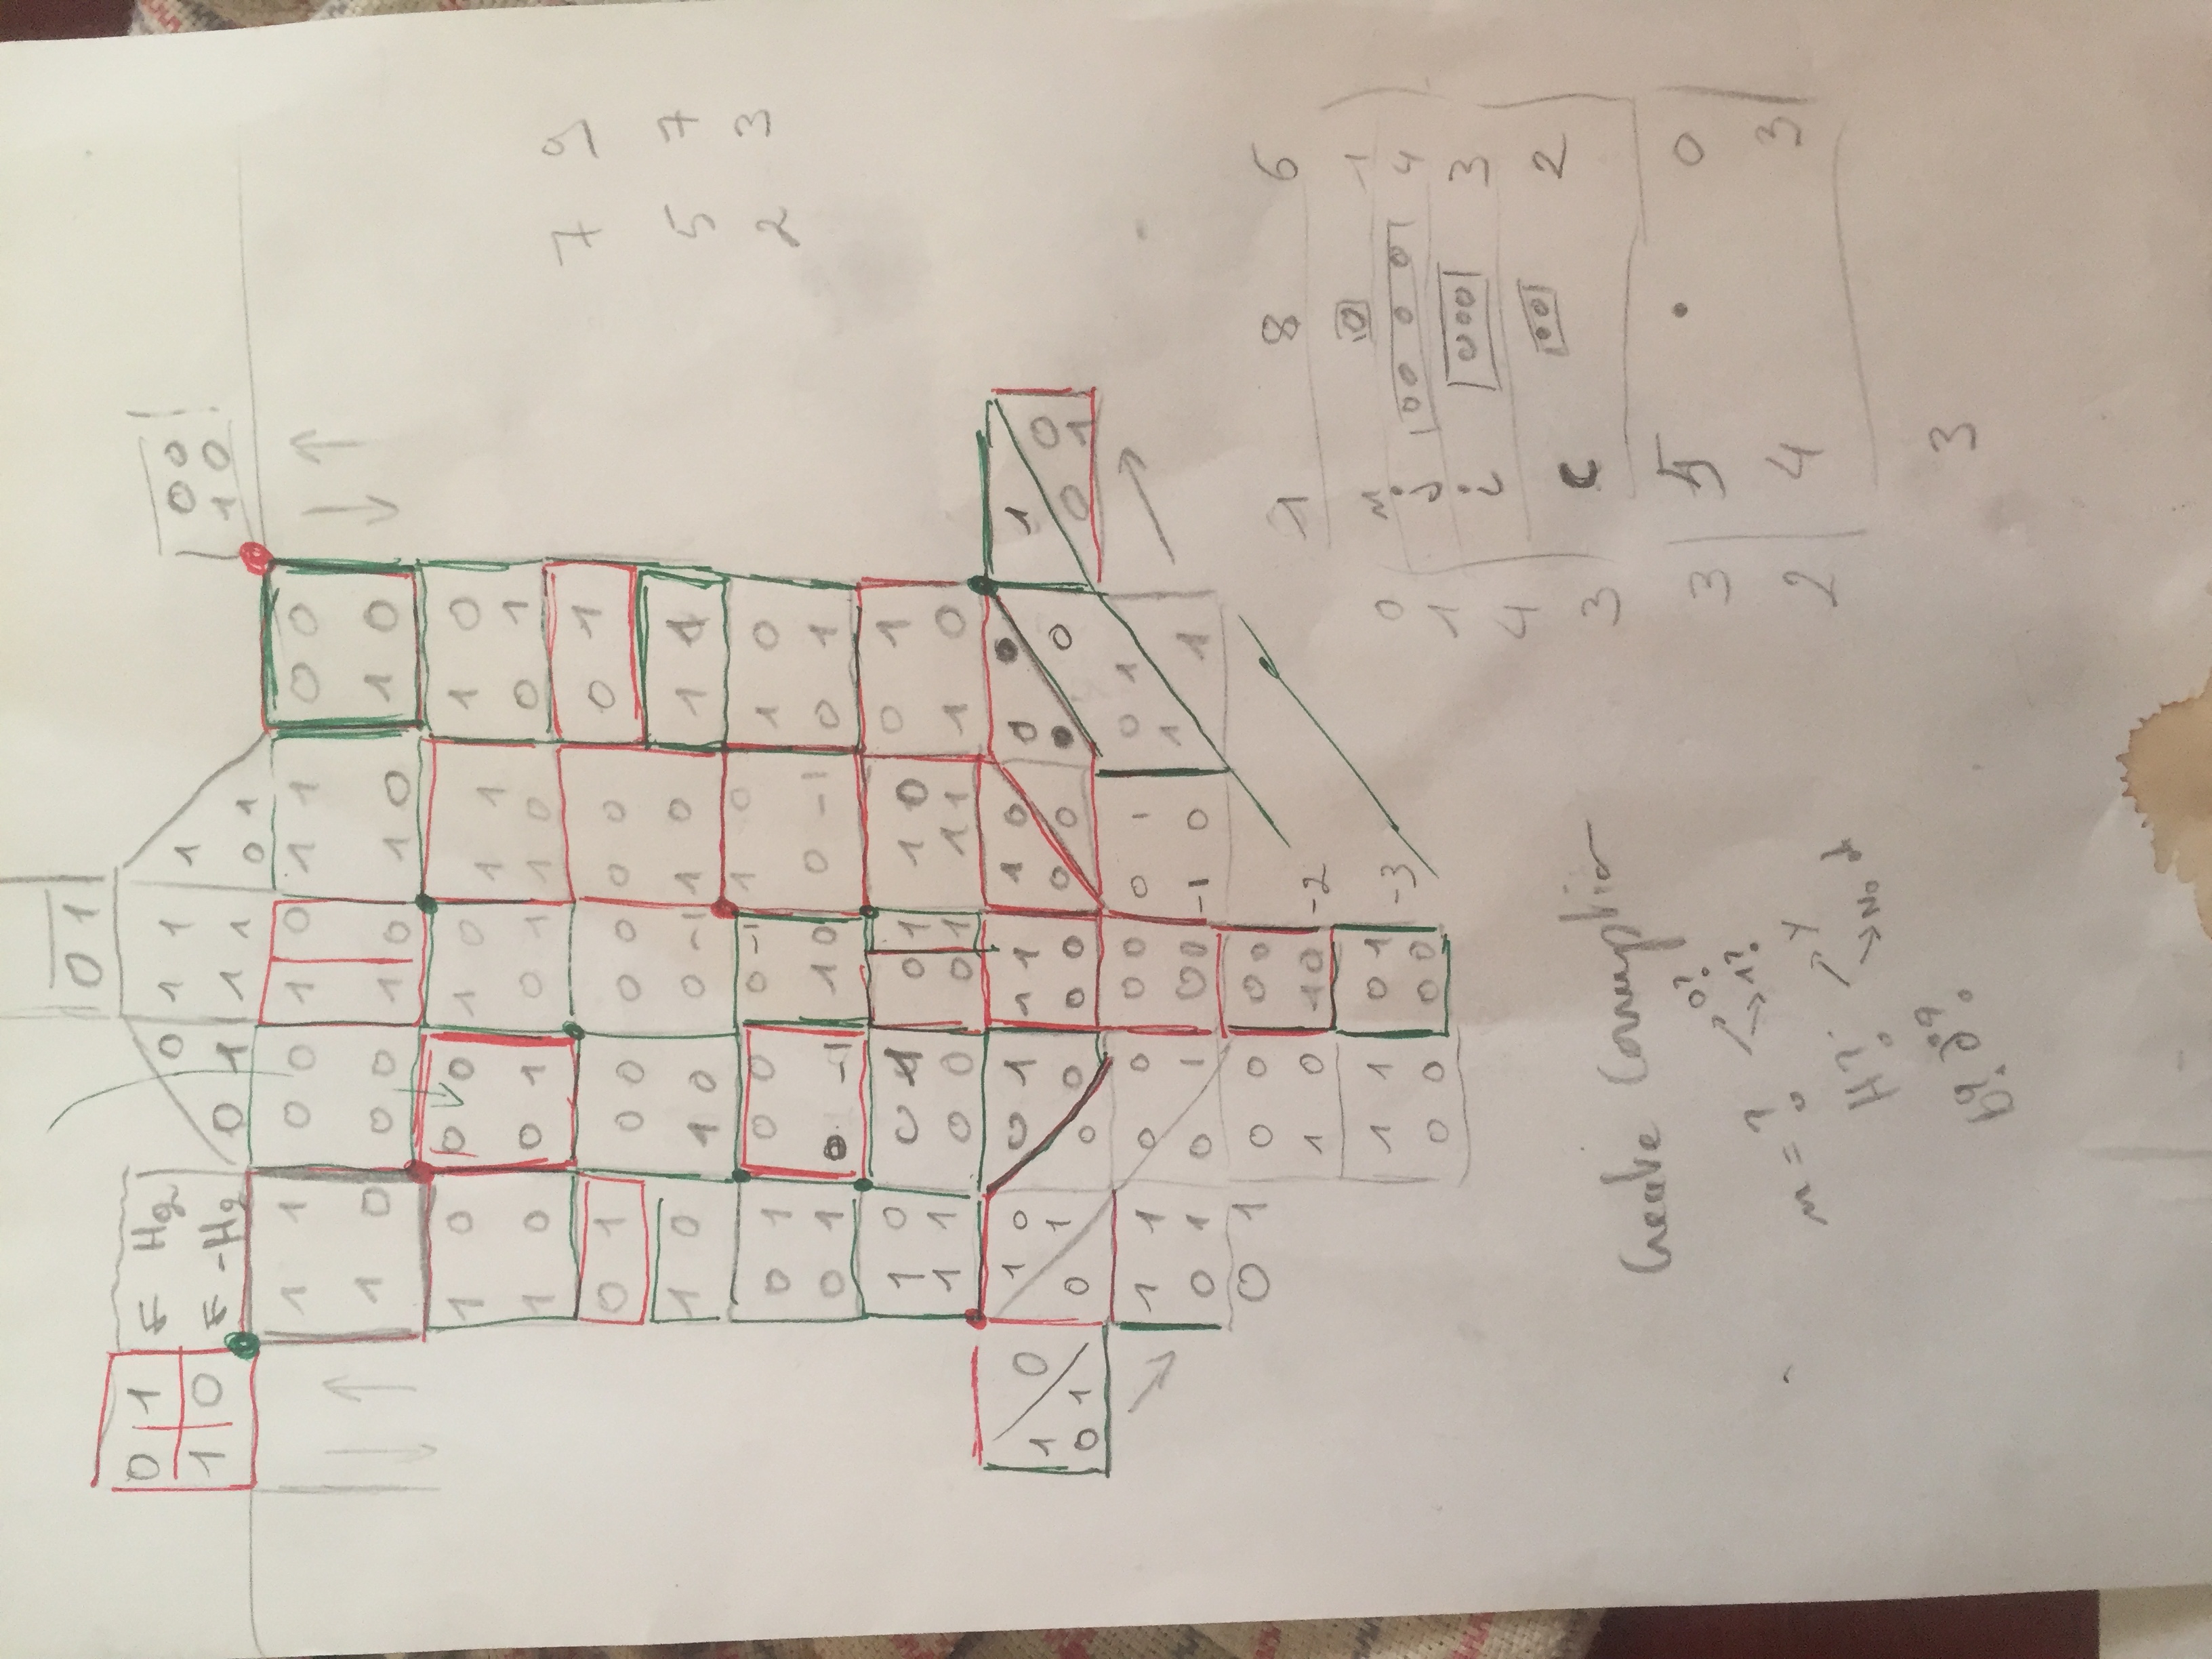 0 1
0 1 ← H2
1 0 ← -H2
0 1 1 1
0 1 1 1 0 1
0 0 !
1 0
1 1 0 0 1 0 1 1 0 0
1 0 0 0 1 0 1 0 1 0
1 0 0 0 1 0 1 1 1 0
1 0 0 1 0 1 1 0 0 1
0 1 0 0 0 0 0 0 0 1
1 0 1 0 0 -1 1 0 1 1
7 9
5 7
2 3
0 1 0 0 0 -1 1 0 1 0
0 1 0 -1 1 0 0 -1 0 1
1 0 0 1 0 1 1 0 0 1
1 1 0 0 0 1 1 1 1 0
1 0 1 0 0 1 1 1 1 0 0 1
0 1 0 1 0 0 0 0 0 0 0 0 0 1
1 1 0 0 0 0 0 1 0 1
0 1 0 1 0 0 -1 0 1 1
0 1 0 0 0 0
1 0 1 0 -2
1 1 0 1 -3
0 0 0 0
1 8 6
0 n 0 1
1 j 0 0 0 0 4
4 i 0 0 0 3
3 c 0 0 2
3 5 • 0
2 4 3
3
Create Corruption
n = ? → 0?
→ 1?
H? → Y
→ No
b? ∂?